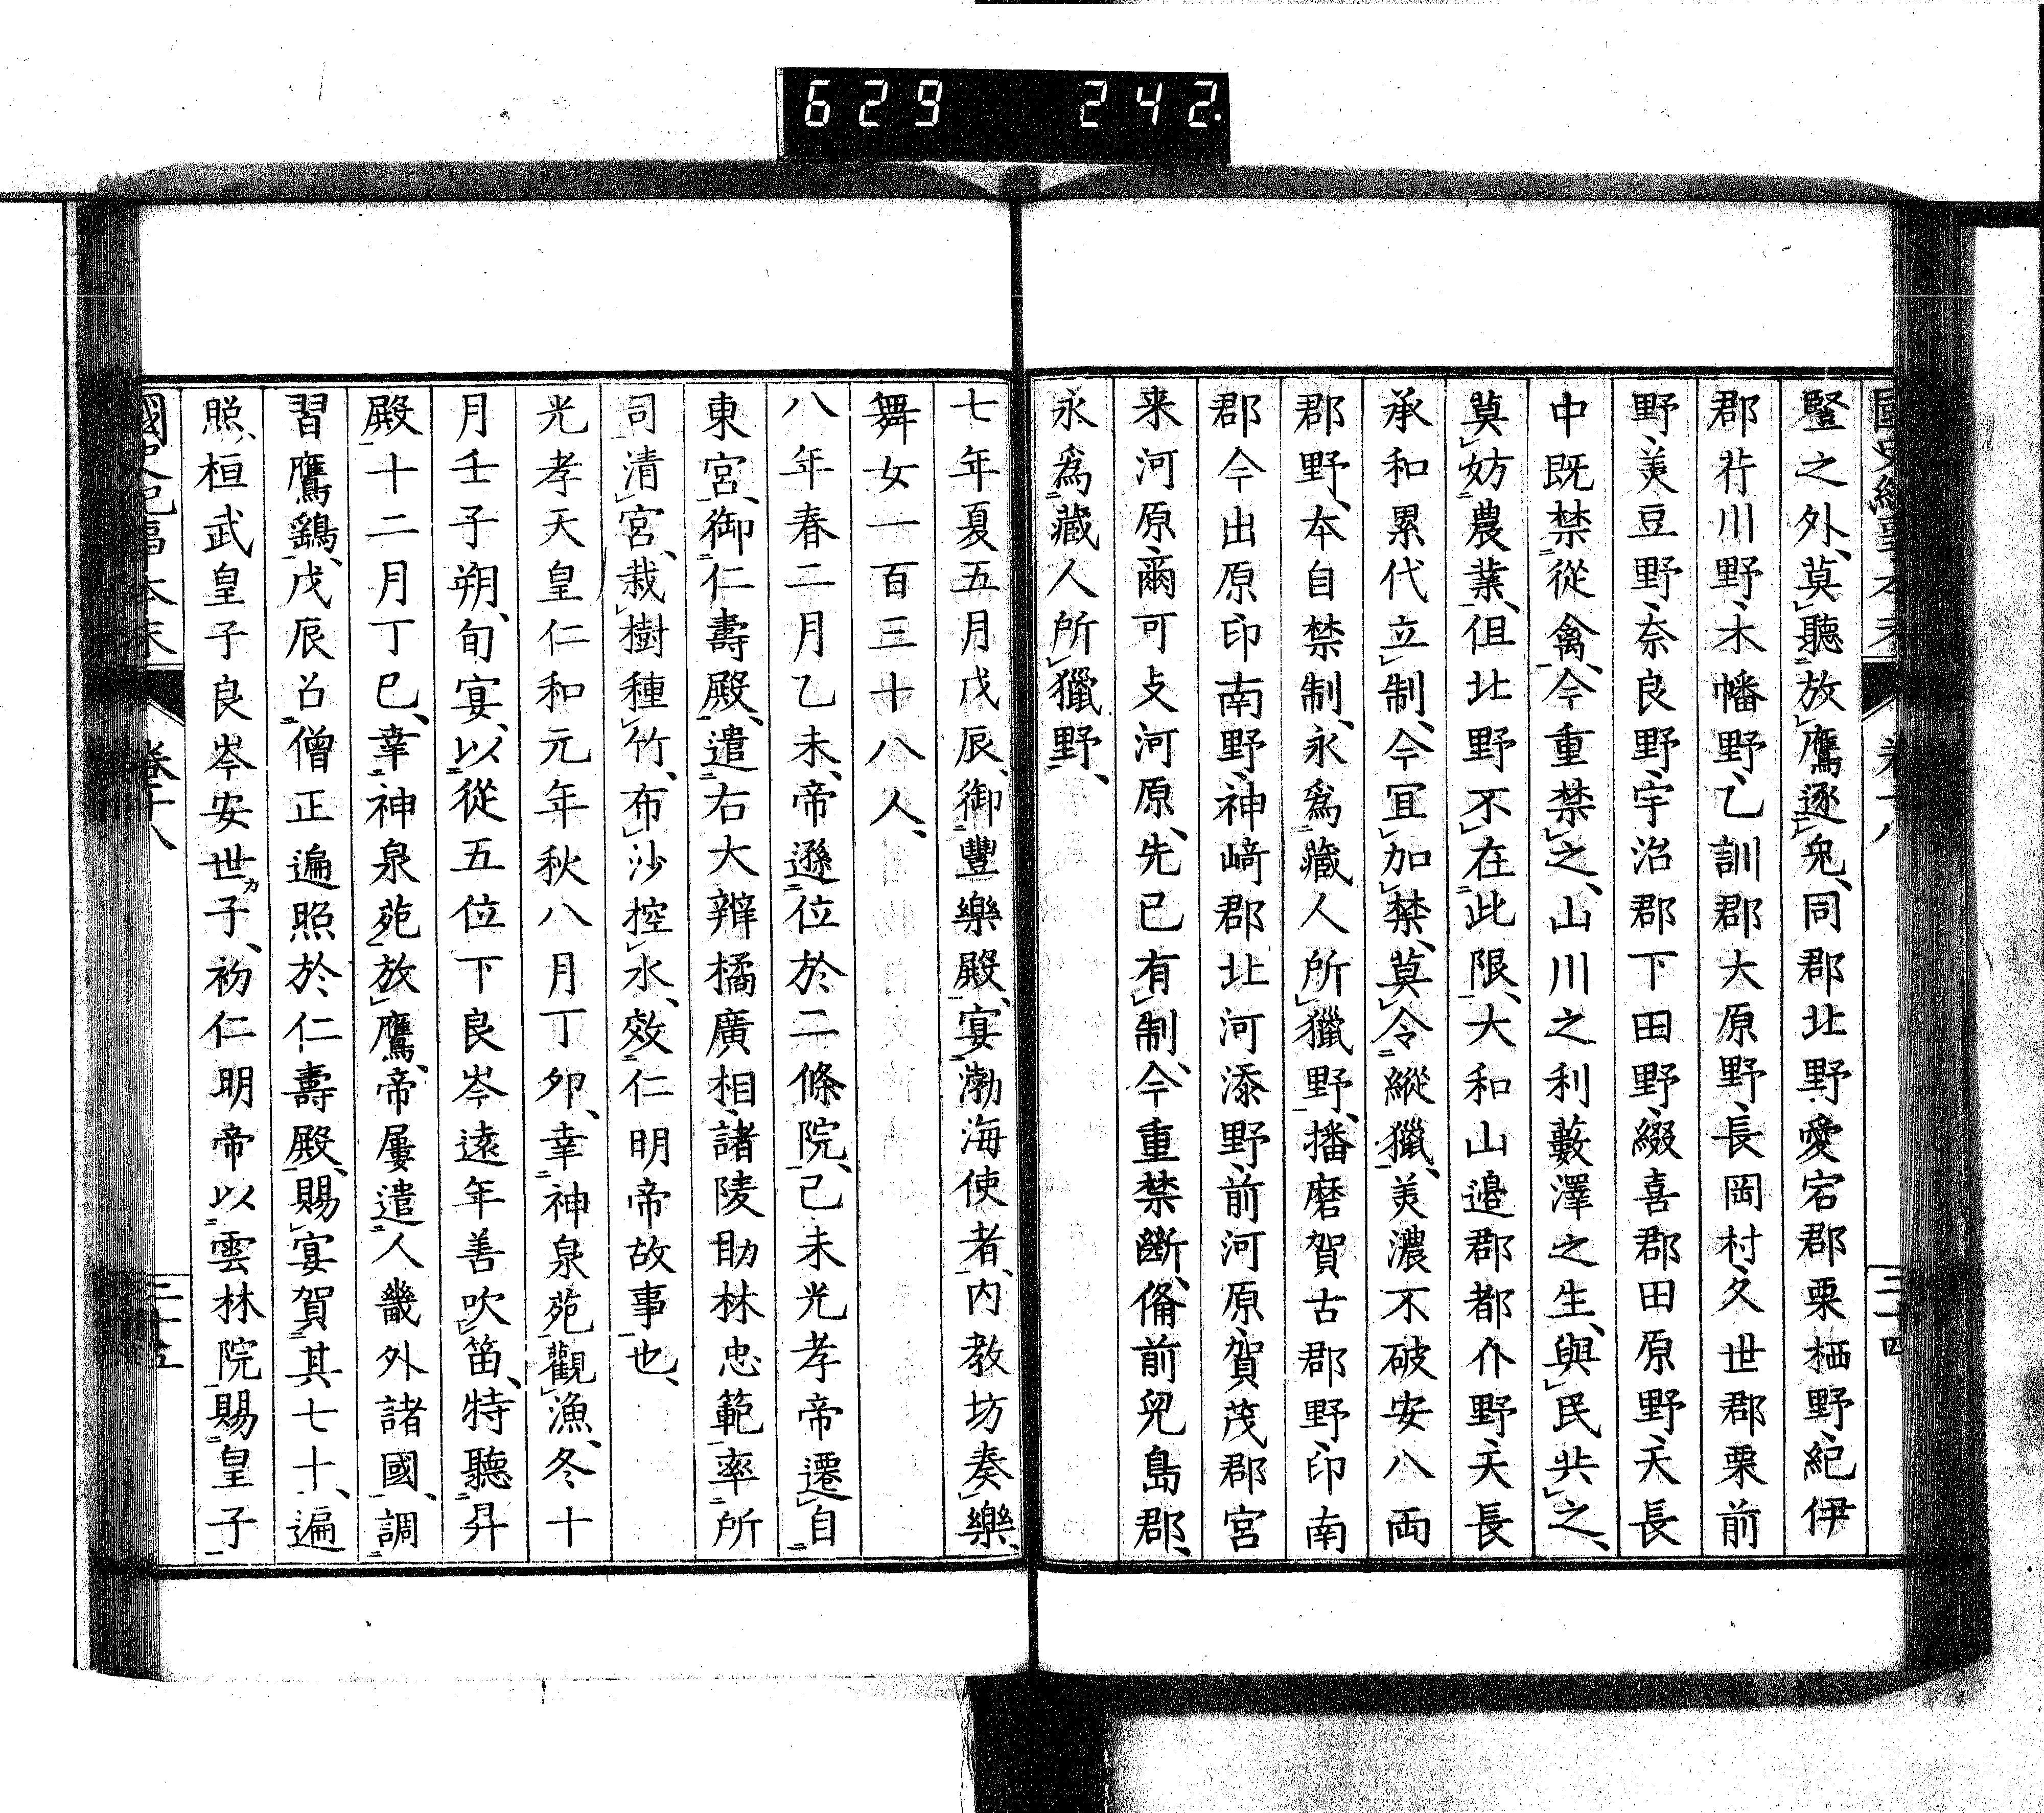 629 242
豎之外、莫聽放鷹逐兔、同郡北野、愛宕郡栗栖野、紀伊
郡芹川野、木幡野、乙訓郡大原野、長岡村、久世郡栗前
野、美豆野、奈良野、宇治郡下田野、綴喜郡田原野、天長
中既禁從禽、今重禁之、山川之利藪澤之生、與民共之、
莫妨農業、但北野不在此限、大和山邉郡都介野、天長
承和累代立制、今宜加禁、莫令縱獵、美濃不破安八両
郡野、本自禁制、永爲藏人所獵野、播磨賀古郡野、印南
郡今出原印南野、神﨑郡北河添野、前河原、賀茂郡宮
来河原、爾可支河原、先已有制、今重禁斷、備前兒島郡、
永爲藏人所獵野、
七年夏五月戊辰、御豐樂殿、宴渤海使者、内教坊奏樂、
舞女一百三十八人、
八年春二月乙未、帝遜位於二條院、己未光孝帝遷自
東宮、御仁壽殿、遣右大辨橘廣相、諸陵助林忠範、率所
司清宮、栽樹種竹、布沙控水、效仁明帝故事也、
光孝天皇仁和元年秋八月丁卯、幸神泉苑觀漁、冬十
月壬子朔、旬宴、以從五位下良岑遠年善吹笛、特聽昇
殿、十二月丁巳、幸神泉苑放鷹、帝屢遣人畿外諸國、調
習鷹鷂、戊辰召僧正遍照於仁壽殿、賜宴賀其七十、遍
照、桓武皇子良岑安世子、初仁明帝以雲林院賜皇子
卷十八